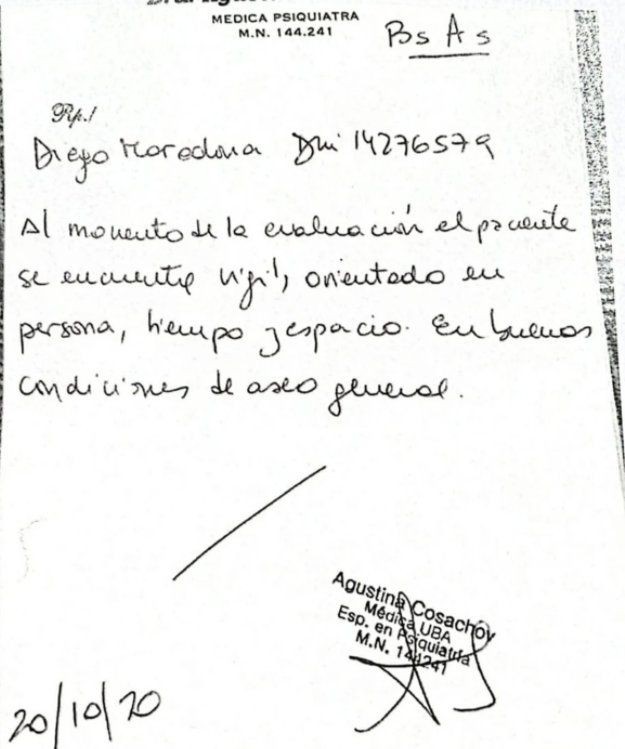 MEDICA PSIQUIATRA
M.N. 144.241
Bs As
Rp./
Diego Maradona Dni 14276579
Al momento de la evaluación el paciente
se encuentra vigil, orientado en
persona, tiempo y espacio. En buenas
condiciones de aseo general.
Agustina Cosachov
Médica UBA
Esp. en Psiquiatría
M.N. 144241
20/10/20